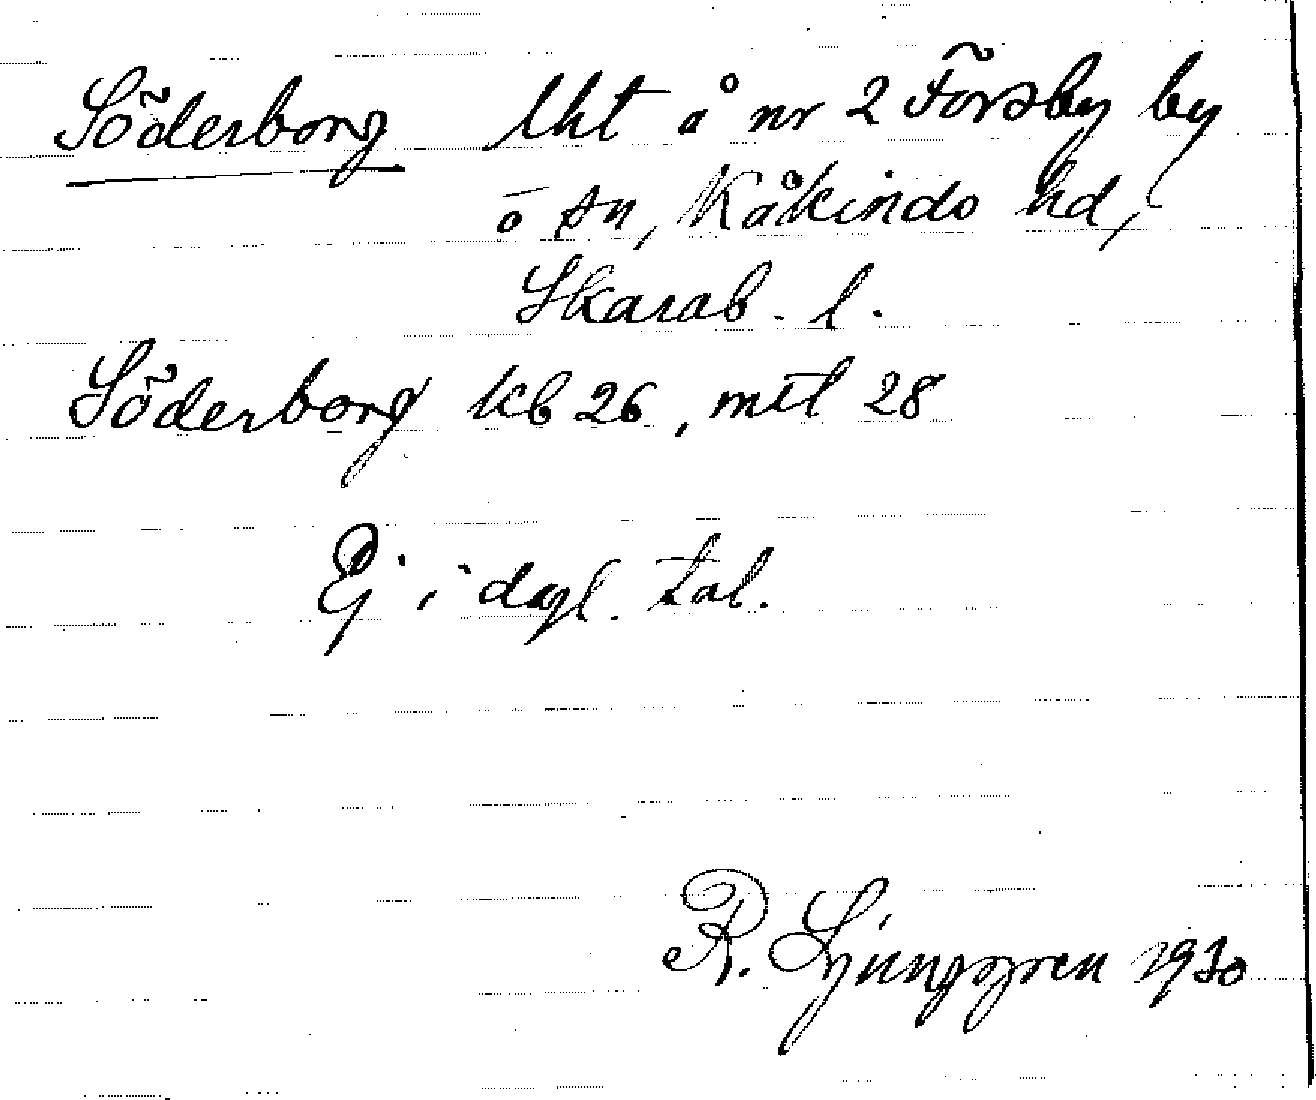 Söderborg lht å nr 2 Forsby by
o sn, Kåkinds hd,
Skarab. l.
Söderborg kb 26, mtl 28
Ej i dagl. tal.
R. Ljunggren 1930